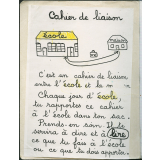 Cahier de liaison
école
maison
C'est un cahier de liaison
entre l'école et la m
Chaque jour d'école,
tu rapportes ce cahier
à l'école dans ton sac.
Prends-en soin. Il te
servira à dire et à lire
ce que tu fais à l'école
ou ce que tu dois apporter.